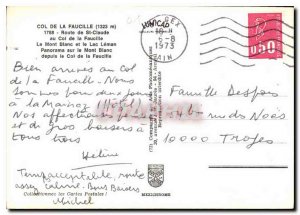 COL DE LA FAUCILLE (1323 m)
1788 - Route de St-Claude
au Col de la Faucille
Le Mont Blanc et le Lac Léman
Panorama sur le Mont Blanc
depuis le Col de la Faucille
18 H
6-8
1973
AIN
0,50
Bien arrivés au Col
de la Faucille. Nous
sommes pour deux jours
à la Mainaz (Hôtel)
Nos affectueuses pensées
et de gros baisers à
tous trois
Hélène
Famille Despois
54 b rue du Noës
10000 Troyes
Temps acceptable, route
assez calme. Bons Baisers
Michel
Collectionnez les Cartes Postales !
MEXICHROME